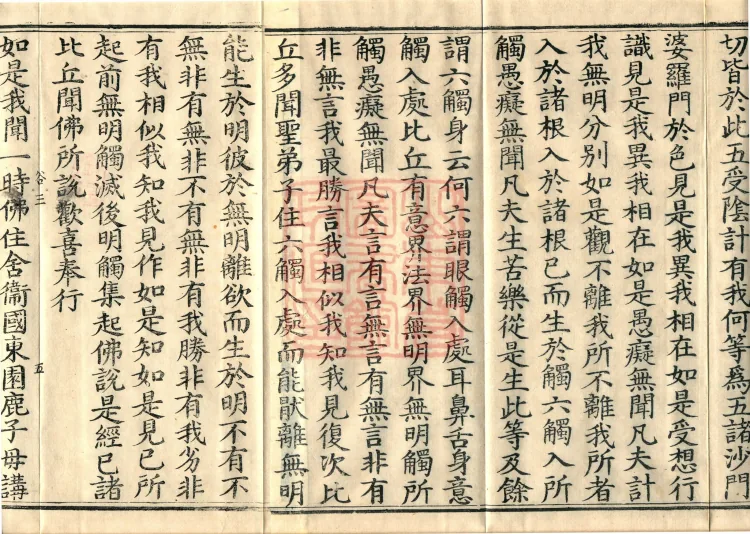 切皆於此五受陰計有我何等為五諸沙門
婆羅門於色見是我異我相在如是受想行
識見是我異我相在如是愚癡無聞凡夫計
我無明分別如是觀不離我所不離我所者
入於諸根入於諸根已而生於觸六觸入所
觸愚癡無聞凡夫生苦樂從是生此等及餘
謂六觸身云何六謂眼觸入處耳鼻舌身意
觸入處比丘有意界法界無明界無明觸所
觸愚癡無聞凡夫言有言無言有無言非有
非無言我最勝言我相似我知我見復次比
丘多聞聖弟子住六觸入處而能猒離無明
能生於明彼於無明離欲而生於明不有不
無非有無非不有無非有我勝非有我劣非
有我相似我知我見作如是知如是見已所
起前無明觸滅後明觸集起佛說是經已諸
比丘聞佛所說歡喜奉行
谷三
五
如是我聞一時佛住舍衞國東園鹿子母講